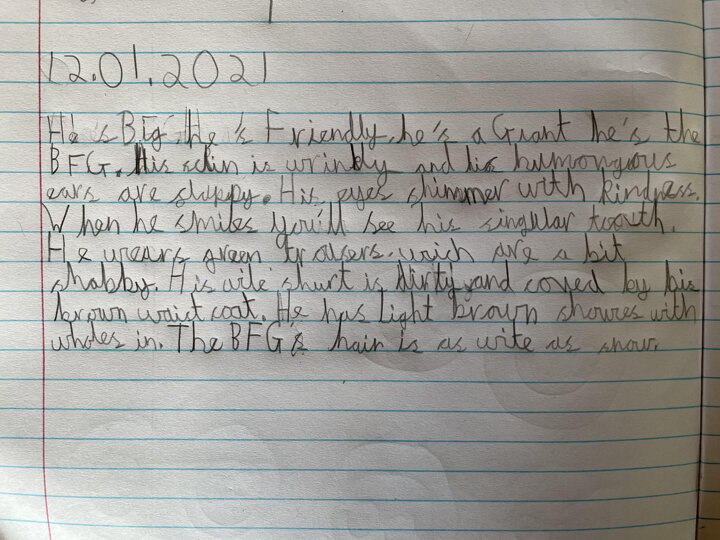 12.01.2021
He is Big, He 's Friendly, he's a Giant he's the
BFG. His skin is wrinkly and his humongous
ears are sluppy. His eyes shimmer with kindness.
When he smiles you'll see his singular toouth.
He wears green trousers. wich are a bit
shabby. His wite shurt is dirty and coved by his
brown waist coat. He has light brown showes with
wholes in. The BFG's hair is as wite as snow.